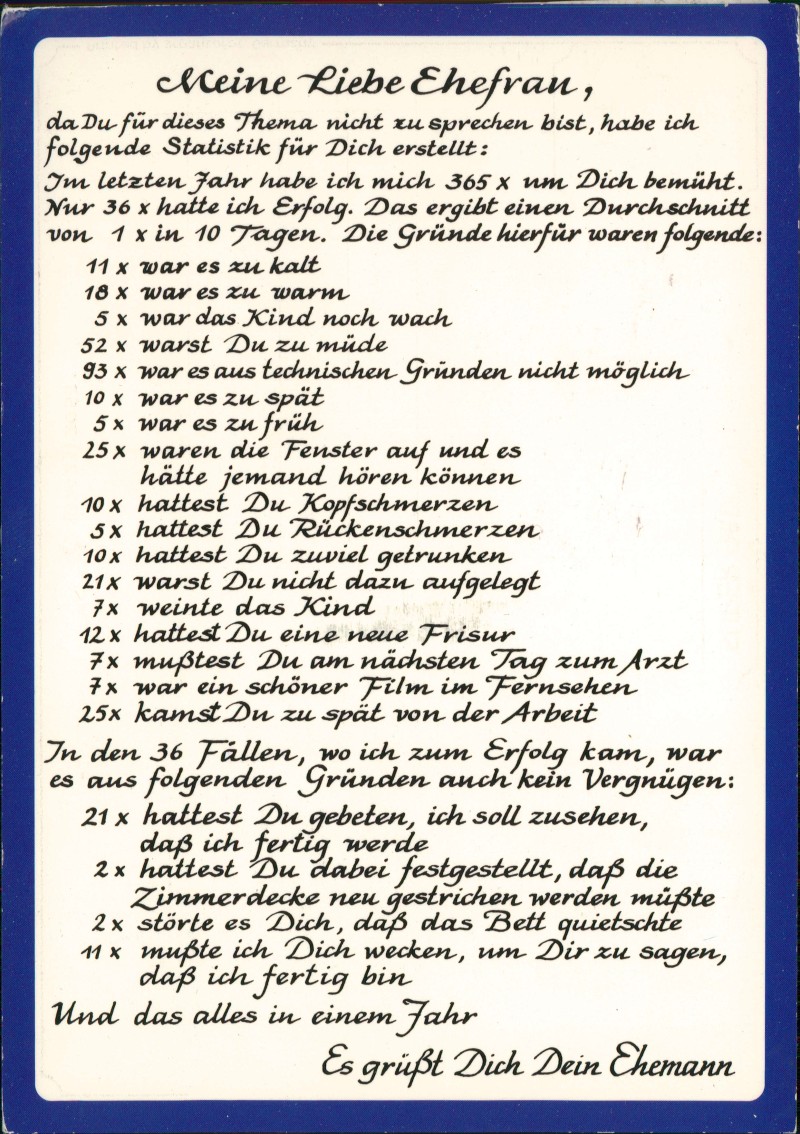 Meine Liebe Ehefrau,
da Du für dieses Thema nicht zu sprechen bist, habe ich
folgende Statistik für Dich erstellt:
Im letzten Jahr habe ich mich 365 x um Dich bemüht.
Nur 36 x hatte ich Erfolg. Das ergibt einen Durchschnitt
von 1 x in 10 Tagen. Die Gründe hierfür waren folgende:
11 x war es zu kalt
18 x war es zu warm
5 x war das Kind noch wach
52 x warst Du zu müde
93 x war es aus technischen Gründen nicht möglich
10 x war es zu spät
5 x war es zu früh
25 x waren die Fenster auf und es
hätte jemand hören können
10 x hattest Du Kopfschmerzen
5 x hattest Du Rückenschmerzen
10 x hattest Du zuviel getrunken
21 x warst Du nicht dazu aufgelegt
7 x weinte das Kind
12 x hattest Du eine neue Frisur
7 x mußtest Du am nächsten Tag zum Arzt
7 x war ein schöner Film im Fernsehen
25 x kamst Du zu spät von der Arbeit
In den 36 Fällen, wo ich zum Erfolg kam, war
es aus folgenden Gründen auch kein Vergnügen:
21 x hattest Du gebeten, ich soll zusehen,
daß ich fertig werde
2 x hattest Du dabei festgestellt, daß die
Zimmerdecke neu gestrichen werden müßte
2 x störte es Dich, daß das Bett quietschte
11 x mußte ich Dich wecken, um Dir zu sagen,
daß ich fertig bin
Und das alles in einem Jahr
Es grüßt Dich Dein Ehemann